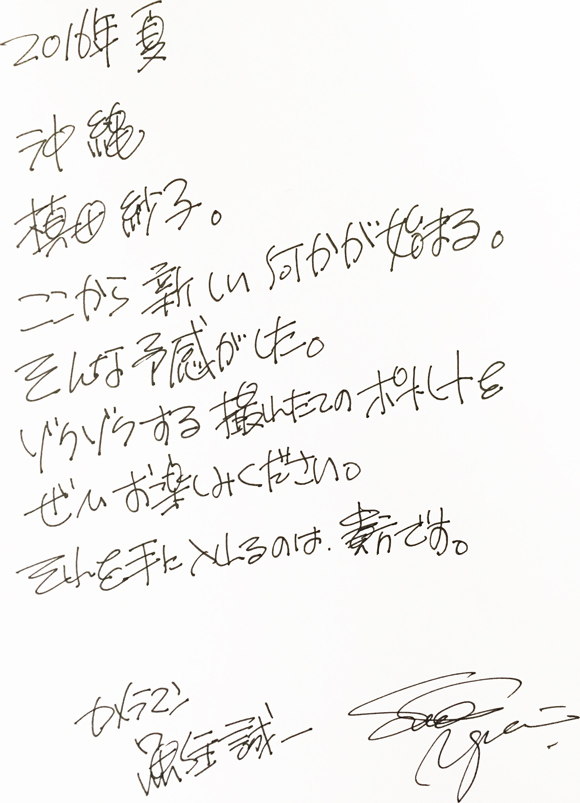 2016年 夏
沖縄
槙田紗子。
ここから新しい何かが始まる。
そんな予感がした。
ゾクゾクする撮れたてのポートレートを
ぜひお楽しみください。
それを手に入れるのは、貴方です。
カメラマン
魚住誠一